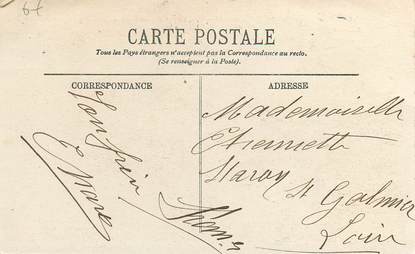 6f
CARTE POSTALE
Tous les Pays étrangers n'acceptent pas la Correspondance au recto.
(Se renseigner à la Poste).
CORRESPONDANCE
Ton frère
ADRESSE
Mademoiselle
Etiennette
Staron
St Galmier
Loire